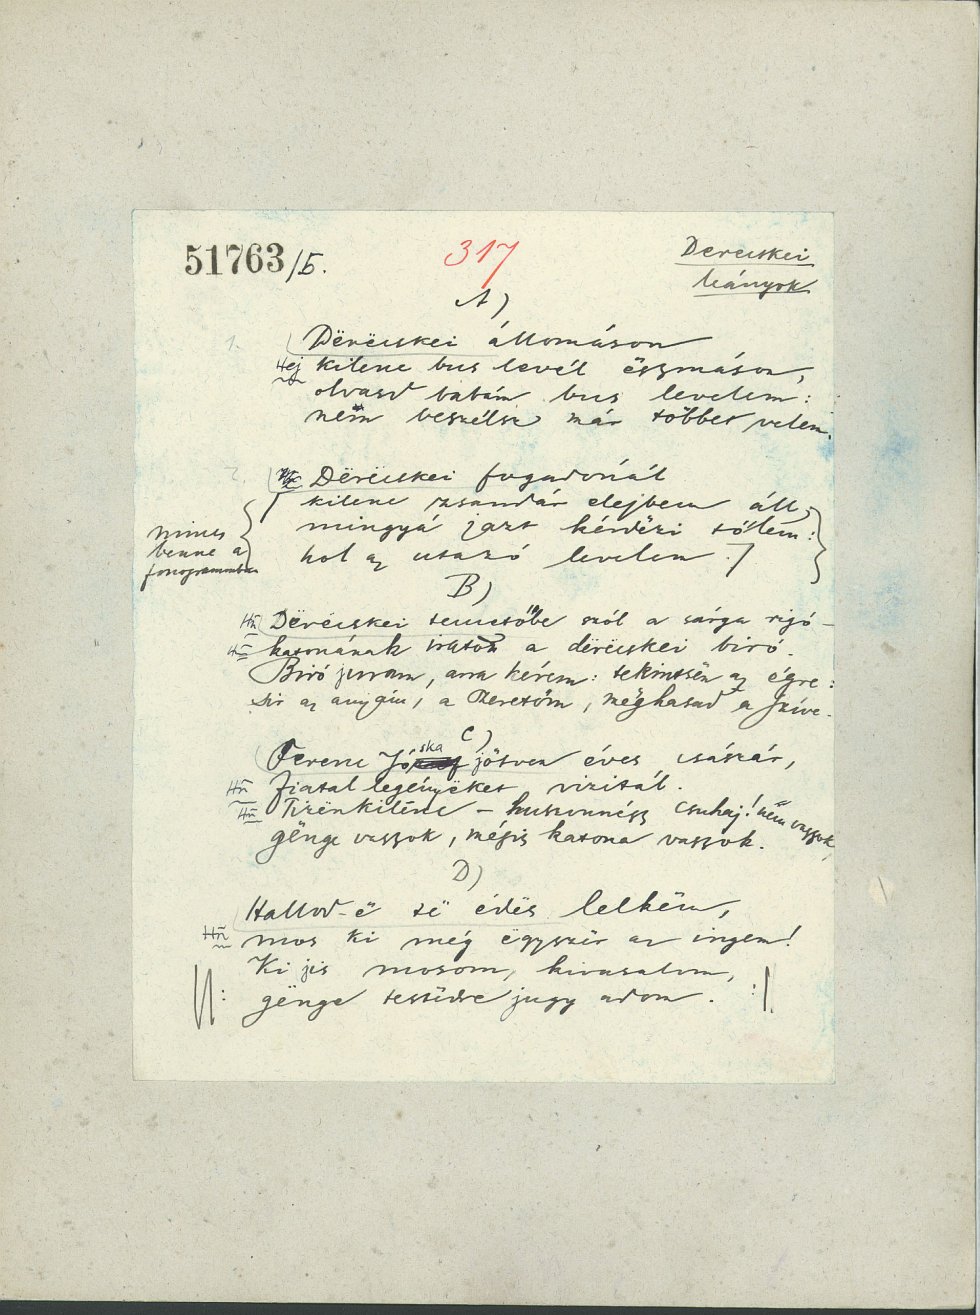 51763/b.
317
Derecskei
leányok
A)
1. Dërëcskei állomáson
Hej kilenc bus levél ëszmáson,
olvasd babám bus levelem:
nëm beszélsz már többet velem.
2. Dërëcskei fogadónál
kilenc zsandár elejbem áll,
mingyá jazt kérdëzi tőlem:
hol az utazó levelem.
nincs
benne a
fonogrammban
B)
Dërëcskei temetőbe szól a sárga rigó
katonának iratott a dërëcskei biró.
Biró juram, arra kérem: tekintsën az égre:
sir az anyám, a szeretőm, mëghasad a szive.
C)
Ferenc Jóska jötven éves császár,
fiatal legényëket vizitál.
Tizënkilenc – huszonnégy csuhaj! nëm vagyok
gënge vagyok, mégis katona vagyok.
D)
Hallod-ë të édës lelkëm,
mos ki még ëgyszër az ingem!
Ki jis mosom, kivasalom,
gënge testëdre jugy adom.